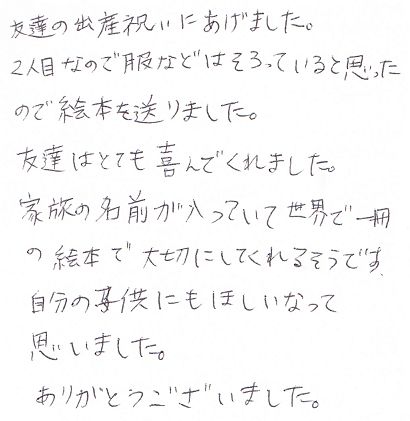 友達の出産祝いにあげました。
2人目なので服などはそろっていると思った
ので絵本を送りました。
友達はとても喜んでくれました。
家族の名前が入っていて世界で一冊
の絵本で大切にしてくれるそうです。
自分の子供にもほしいなって
思いました。
ありがとうございました。